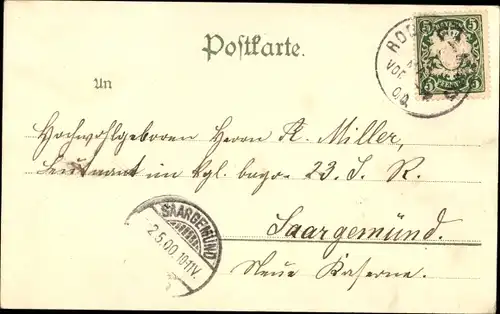 Postkarte.
5 BAYERN 5
5 PFENNIG 5
VOR
00
An
Hochwohlgeboren Herrn A. Miller,
Leutnant im kgl. bayr. 23. I. R.
Saargemünd.
Neue Kaserne.
SAARGEMÜND
2.5.00.10-11V.